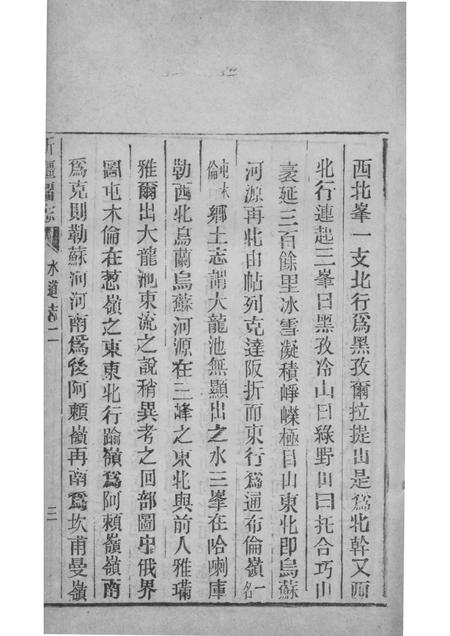 西北峯一支北行爲黑孜爾拉提出是爲北幹又西
北行連起三峯曰黑孜冷山曰綠野山曰托合巧山
袤延三百餘里冰雪凝積崢嶸極目山東北卽烏蘇
河源再北由帖列克達阪折而東行爲通布倫嶺一名
屯木倫鄉土志謂大龍池無顯出之水三峯在哈喇庫
勒西北烏蘭烏蘇河源在三峰之東北與前人雅璊
雅爾出大龍池東流之說稍異考之回部圖中俄界
圖屯木倫在葱嶺之東東北行踰嶺爲阿賴嶺嶺南
爲克則勒蘇河河南爲後阿賴嶺再南爲坎甫曼嶺
新疆圖志
水道志二
三